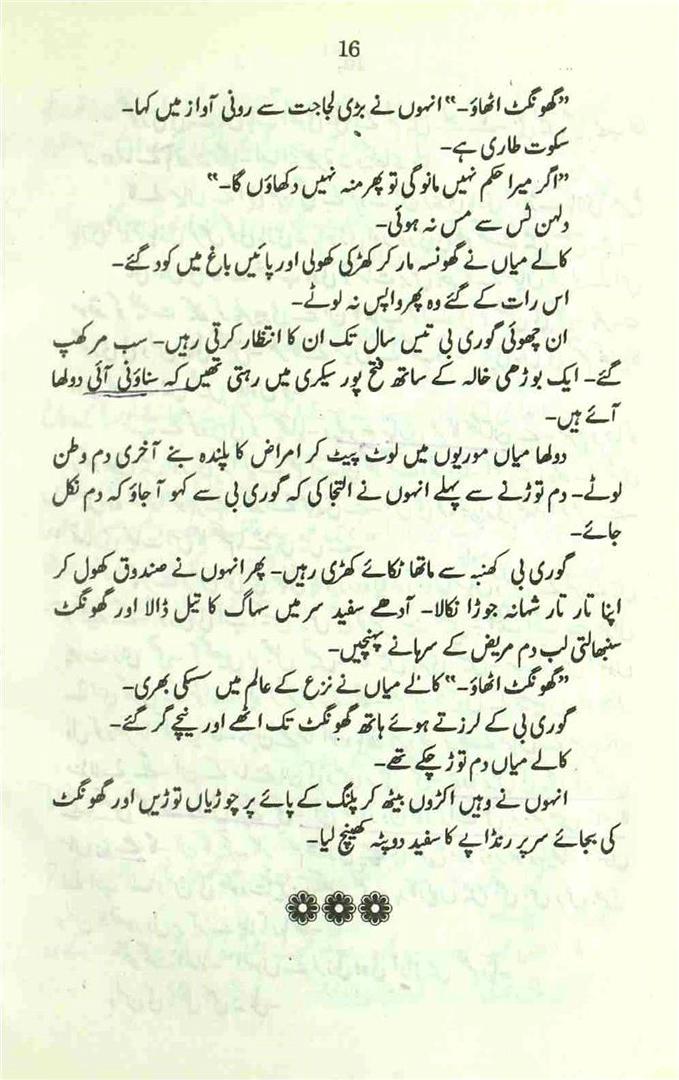 16
”گھونگٹ اٹھاؤ۔“ انہوں نے بڑی لجاجت سے رونی آواز میں کہا۔
سکوت طاری ہے۔
”اگر میرا حکم نہیں مانوگی تو پھر منہ نہیں دکھاؤں گا۔“
دلہن ٹس سے مس نہ ہوئی۔
کالے میاں نے گھونسہ مار کر کھڑکی کھولی اور پائیں باغ میں کود گئے۔
اس رات کے گئے وہ پھر واپس نہ لوٹے۔
ان چھوئی گوری بی تیس سال تک ان کا انتظار کرتی رہیں۔ سب مر کھپ
گئے۔ ایک بوڑھی خالہ کے ساتھ فتح پور سیکری میں رہتی تھیں کہ سناؤنی آئی دولھا
آئے ہیں۔
دولھا میاں موریوں میں لوٹ پیٹ کر امراض کا پلندہ بنے آخری دم وطن
لوٹے۔ دم توڑنے سے پہلے انہوں نے التجا کی کہ گوری بی سے کہو آ جاؤ کہ دم نکل
جائے۔
گوری بی کھنبہ سے ماتھا ٹکائے کھڑی رہیں۔ پھر انہوں نے صندوق کھول کر
اپنا تار تار شہانہ جوڑا نکالا۔ آدھے سفید سر میں سہاگ کا تیل ڈالا اور گھونگٹ
سنبھالتی لب دم مریض کے سرہانے پہنچیں۔
”گھونگٹ اٹھاؤ۔“ کالے میاں نے نزع کے عالم میں سسکی بھری۔
گوری بی کے لرزتے ہوئے ہاتھ گھونگٹ تک اٹھے اور نیچے گر گئے۔
کالے میاں دم توڑ چکے تھے۔
انہوں نے وہیں اکڑوں بیٹھ کر پلنگ کے پائے پر چوڑیاں توڑیں اور گھونگٹ
کی بجائے سر پر رنڈاپے کا سفید دوپٹہ کھینچ لیا۔